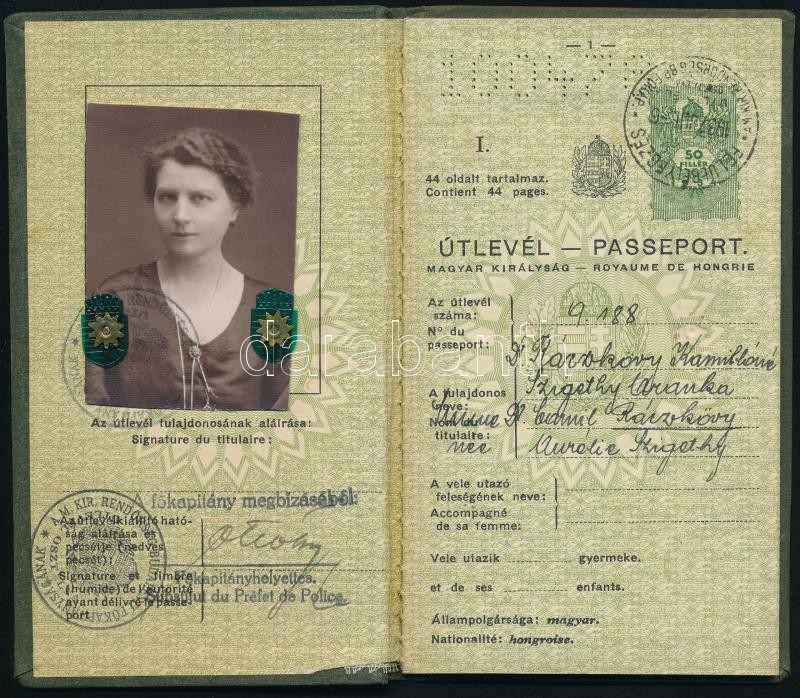 Az útlevél tulajdonosának aláírása:
Signature du titulaire:
A főkapitány megbízásából:
Az útlevélkiállító ható-
ság aláírása és
pecsétje (nedves
pecsét):
Signature et timbre
(humide) de l'autorité
ayant délivré le passe-
port
főkapitányhelyettes.
Substitut du Préfet de Police.
— 1 —
I.
44 oldalt tartalmaz.
Contient 44 pages.
50
FILLÉR
ÚTLEVÉL — PASSEPORT.
MAGYAR KIRÁLYSÁG — ROYAUME DE HONGRIE
Az útlevél
száma:
Nº du
passeport:
9.188
Dr Ráczkövy Kamillóné
Szigethy Aranka
A tulajdonos
neve:
Nom du
titulaire:
Dr Camil Ráczkövy
née Aurélie Szigethy
A vele utazó
feleségének neve:
Accompagné
de sa femme:
Vele utazik gyermeke.
et de ses enfants.
Állampolgársága: magyar.
Nationalité: hongroise.
darabanth